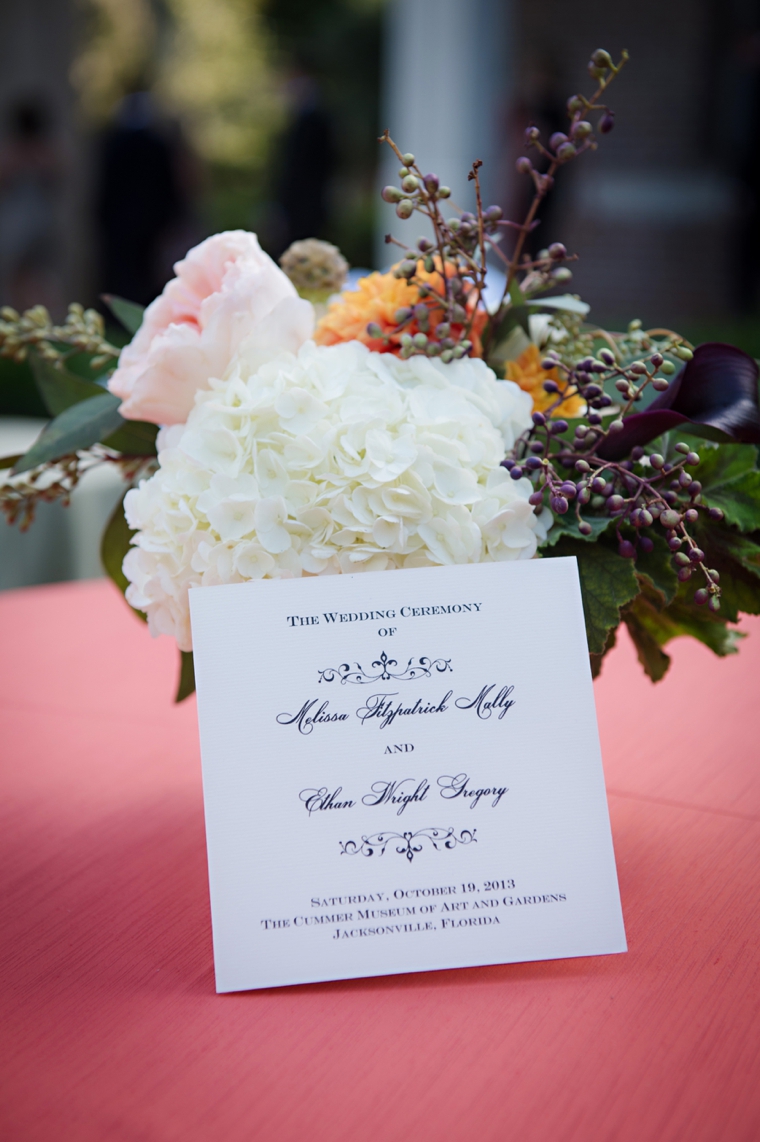 The Wedding Ceremony
of
Melissa Fitzpatrick Mally
and
Ethan Wright Gregory
Saturday, October 19, 2013
The Cummer Museum of Art and Gardens
Jacksonville, Florida